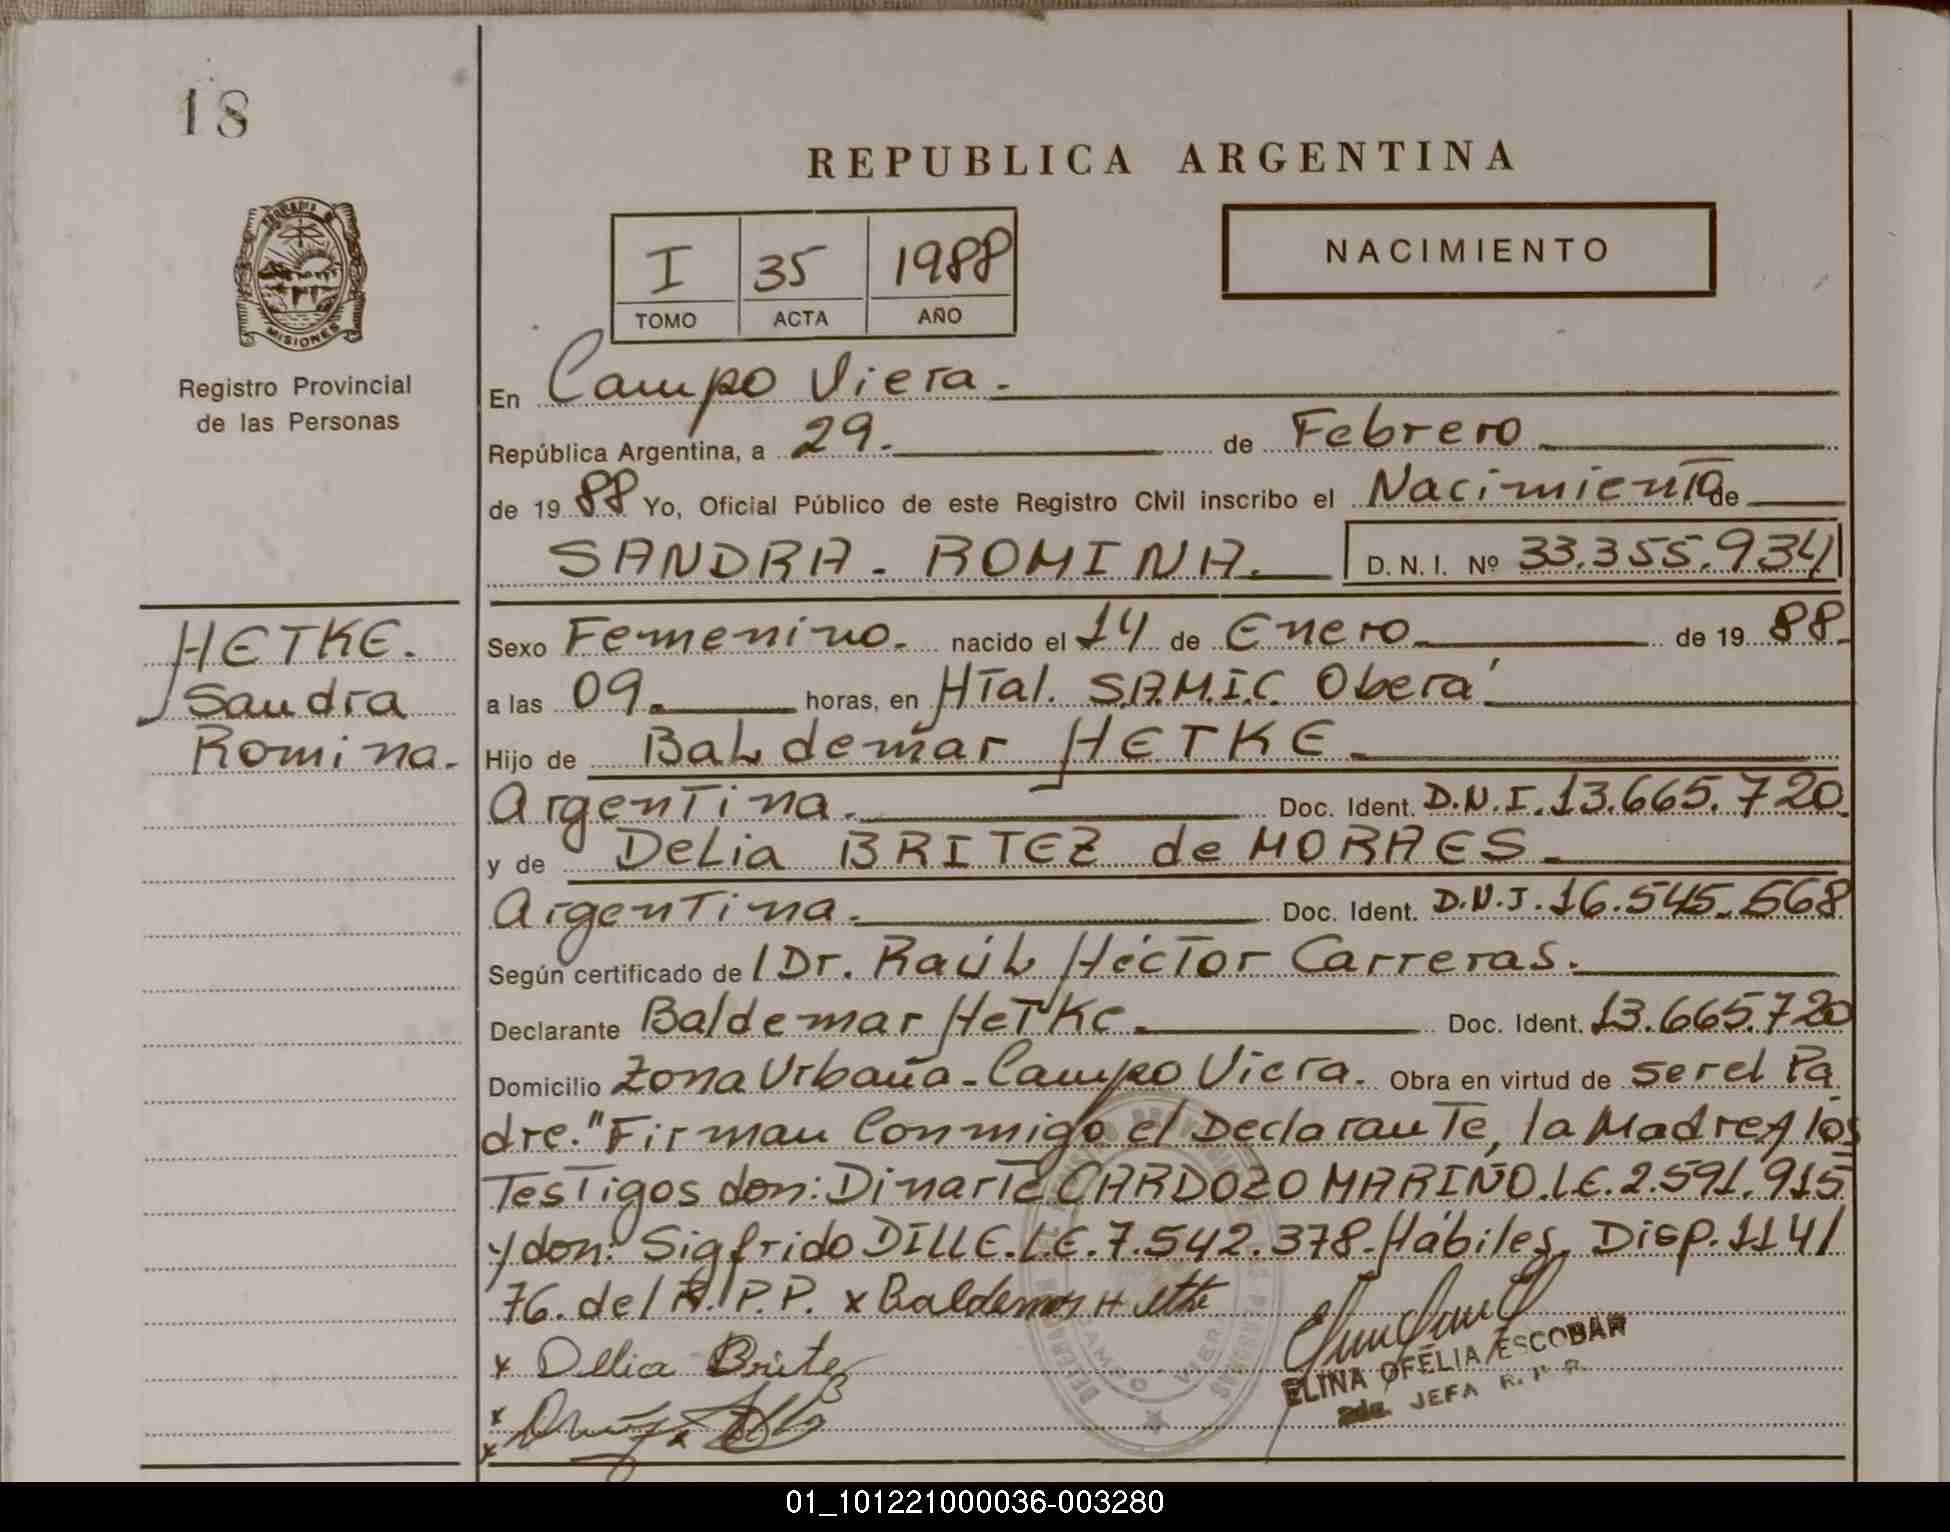 18
REPUBLICA ARGENTINA
NACIMIENTO
I 35 1988
TOMO ACTA AÑO
MISIONES
Registro Provincial
de las Personas
En Campo Viera.
República Argentina, a 29. de Febrero
de 19 88 Yo, Oficial Público de este Registro Civil inscribo el Nacimiento de
SANDRA - ROMINA. D. N. I. Nº 33.355.934
HETKE.
Sandra
Romina.
Sexo Femenino. nacido el 14 de Enero de 19 88.
a las 09. horas, en HTal. S.A.M.I.C. Oberá
Hijo de BaLdemar HETKE
Argentina. Doc. Ident. D.N.I. 13.665.720.
y de DeLia BRITEZ de MORAES
Argentina. Doc. Ident. D.N.I. 16.545.568
Según certificado de l Dr. RaúL Héctor Carreras.
Declarante Baldemar HeTKe. Doc. Ident. 13.665.720
Domicilio Zona Urbana - Campo Viera. Obra en virtud de ser el Pa
dre." Firman Conmigo el Declarante, la Madre y los
Testigos don: Dinarte CARDOZO MARIÑO. L.E. 2.591.915
y don: Sigfrido DILLE. L.E. 7.542.378. Hábiles, Disp. 114/
76. del R.P.P. x Baldemar Hetke
x Delia Britez
ELINA OFELIA ESCOBAR
2da. JEFA R. P. P.
01_101221000036-003280